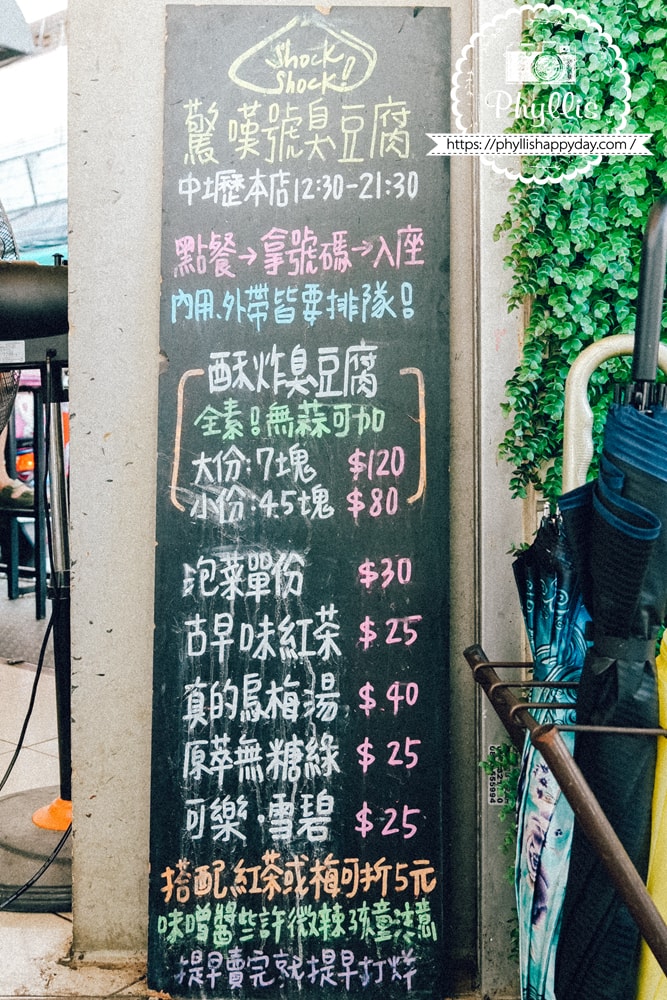 Shock
Shock!!
驚嘆號臭豆腐
中壢本店12:30-21:30
點餐→拿號碼→入座
內用、外帶皆要排隊!
酥炸臭豆腐
全素!無蒜可加
大份:7塊 $120
小份:4.5塊 $80
泡菜單份 $30
古早味紅茶 $25
真的烏梅湯 $40
原萃無糖綠 $25
可樂·雪碧 $25
搭配紅茶或梅可折5元
味噌醬些許微辣孩童注意
提早賣完就提早打烊
Phyllis
https://phyllishappyday.com/